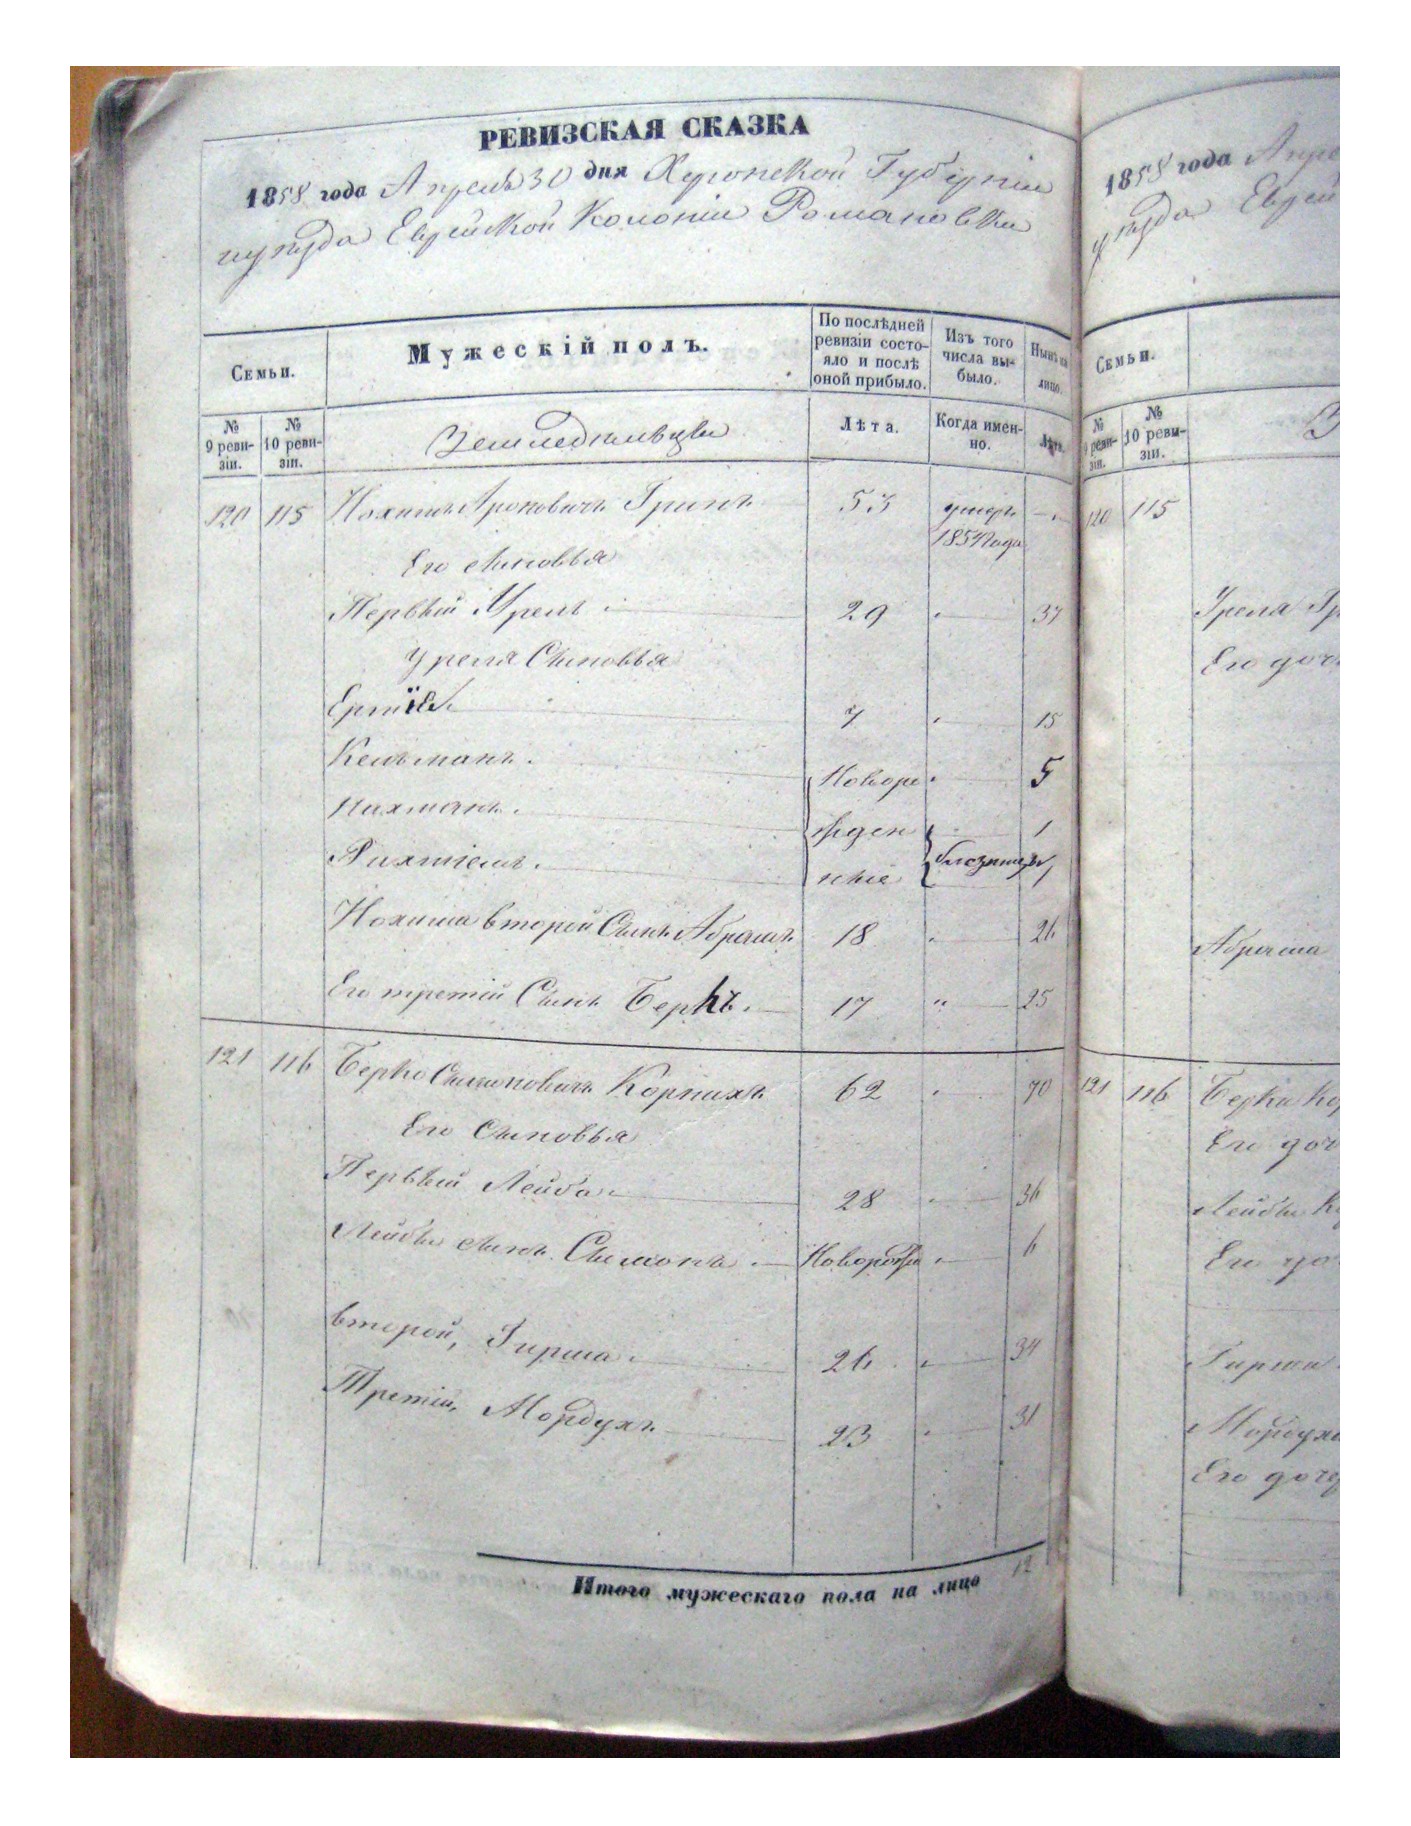 РЕВИЗСКАЯ СКАЗКА
1858 года Апреля 30 дня Херсонской Губерніи
уѣзда Еврейской Колоніи Романовки
Семьи.
Мужескій полъ.
По послѣдней ревизіи состояло и послѣ оной прибыло.
Изъ того числа выбыло.
Нынѣ на лицо.
№ 9 ревизіи.
№ 10 ревизіи.
Земледѣльцы
Лѣта.
Когда именно.
Лѣта.
120 115 Нохимъ Ароновичъ Гринъ 53 умеръ
1854 года
Его сыновья
Первый Урелъ 29 37
Уреля Сыновья
7 15
Кельманъ. Новоро 5
Нахманъ. жден 1
ные близнецы 1
Нохима второй Сынъ Абрамъ 18 26
Его третій Сынъ Беркъ. 17 25
121 116 Берко Сымоновичъ Корнихъ 62 70
Его Сыновья
Первый Лейба 28 36
Лейбы сынъ Сымонъ Новорожд 6
второй, Гирша 26 34
Третій, Мордухъ 23 31
Итого мужескаго пола на лицо 12
1858 года Апре
уѣзда Еврей
Семьи.
№ 9 ревизіи.
№ 10 ревизіи.
З
120 115
Урела Гр
Его доч
Абрама
121 116 Берки Ко
Его доч
Лейбы К
Его до
Гирши
Мордуха
Его доче